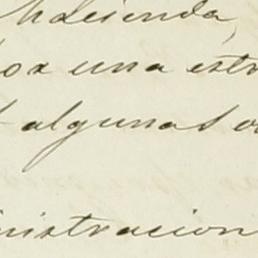 Hacienda,
por una estr
algunas o
inistracion